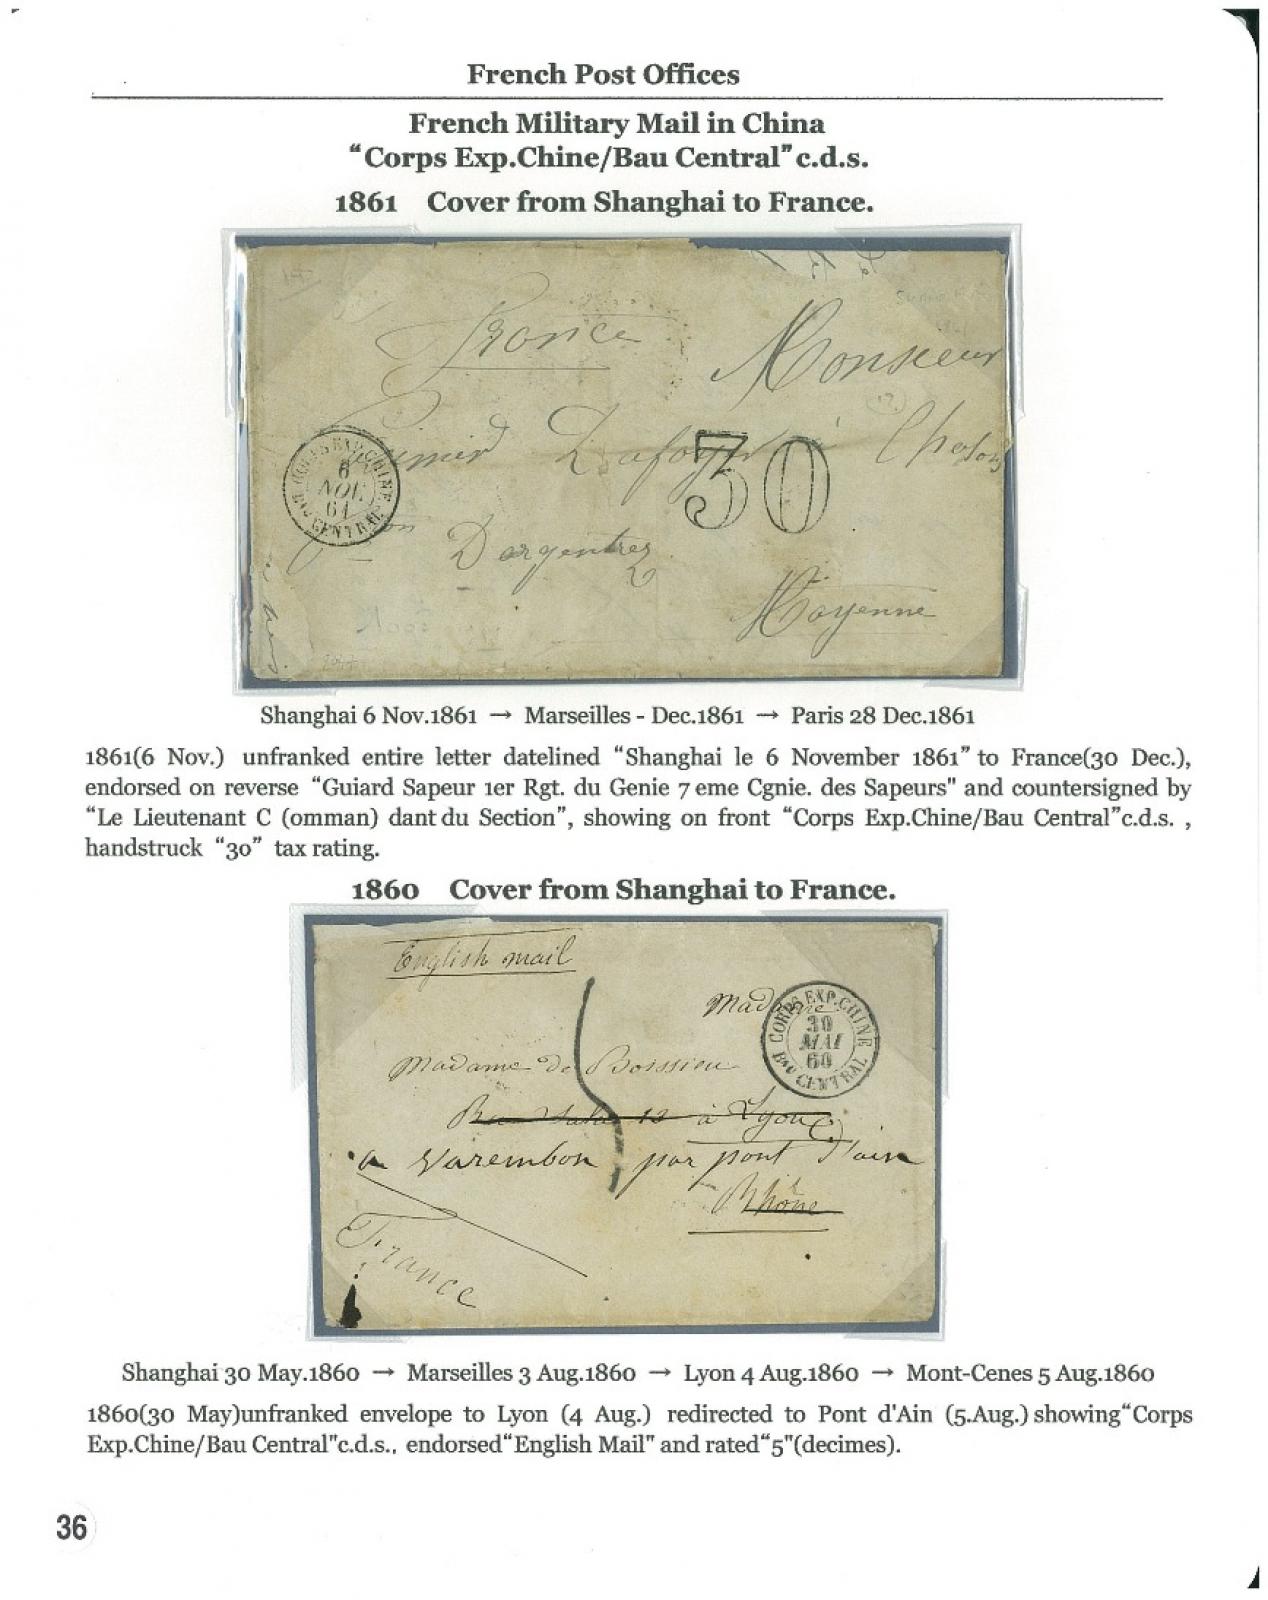 French Post Offices
French Military Mail in China
“Corps Exp.Chine/Bau Central”c.d.s.
1861 Cover from Shanghai to France.
France
Monsieur
30
CORPS EXP. CHINE
6
NOV.
61
Bau CENTRAL
Dargentrez
Mayenne
Shanghai 6 Nov.1861 → Marseilles - Dec.1861 → Paris 28 Dec.1861
1861(6 Nov.) unfranked entire letter datelined “Shanghai le 6 November 1861” to France(30 Dec.),
endorsed on reverse “Guiard Sapeur 1er Rgt. du Genie 7 eme Cgnie. des Sapeurs" and countersigned by
“Le Lieutenant C (omman) dant du Section”, showing on front “Corps Exp.Chine/Bau Central”c.d.s. ,
handstruck “30” tax rating.
1860 Cover from Shanghai to France.
English mail
Madame
CORPS EXP. CHINE
30
MAI
60
Bau CENTRAL
Madame de Boissieu
12 à Lyon
a Varembon par pont d'ain
Rhône
France
5
Shanghai 30 May.1860 → Marseilles 3 Aug.1860 → Lyon 4 Aug.1860 → Mont-Cenes 5 Aug.1860
1860(30 May)unfranked envelope to Lyon (4 Aug.) redirected to Pont d'Ain (5.Aug.) showing“Corps
Exp.Chine/Bau Central"c.d.s., endorsed“English Mail" and rated“5"(decimes).
36